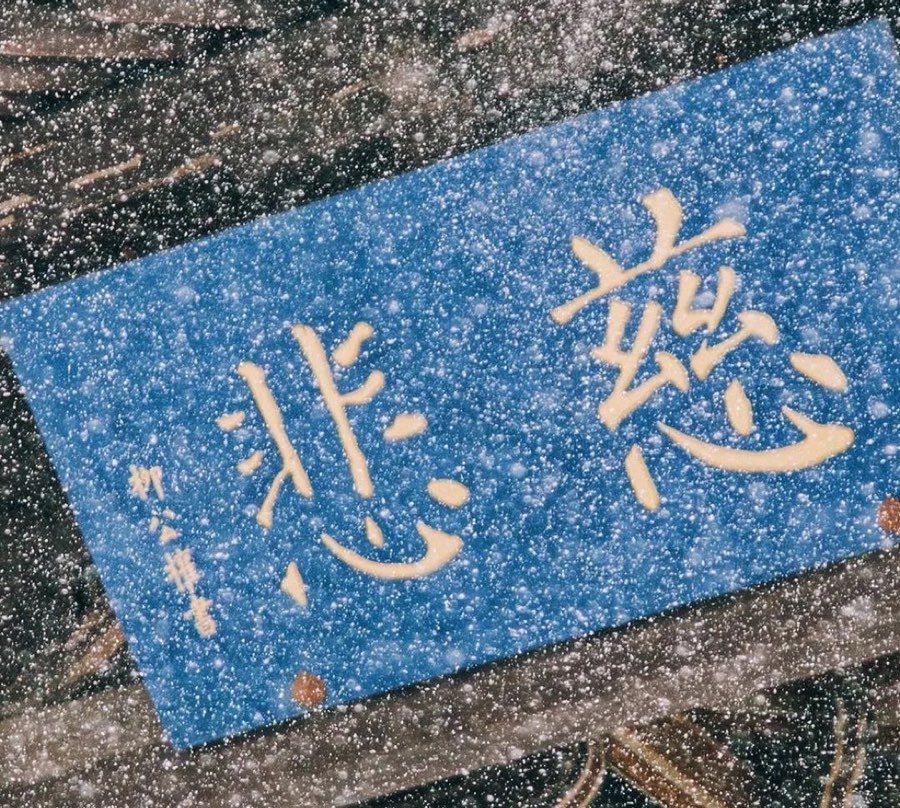 慈悲
柳公權書